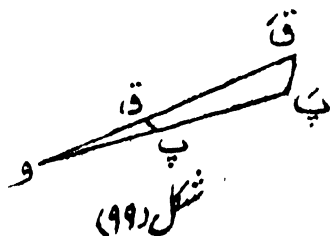 قَ
پَ
ق
پ
و
شکل (۹۹)